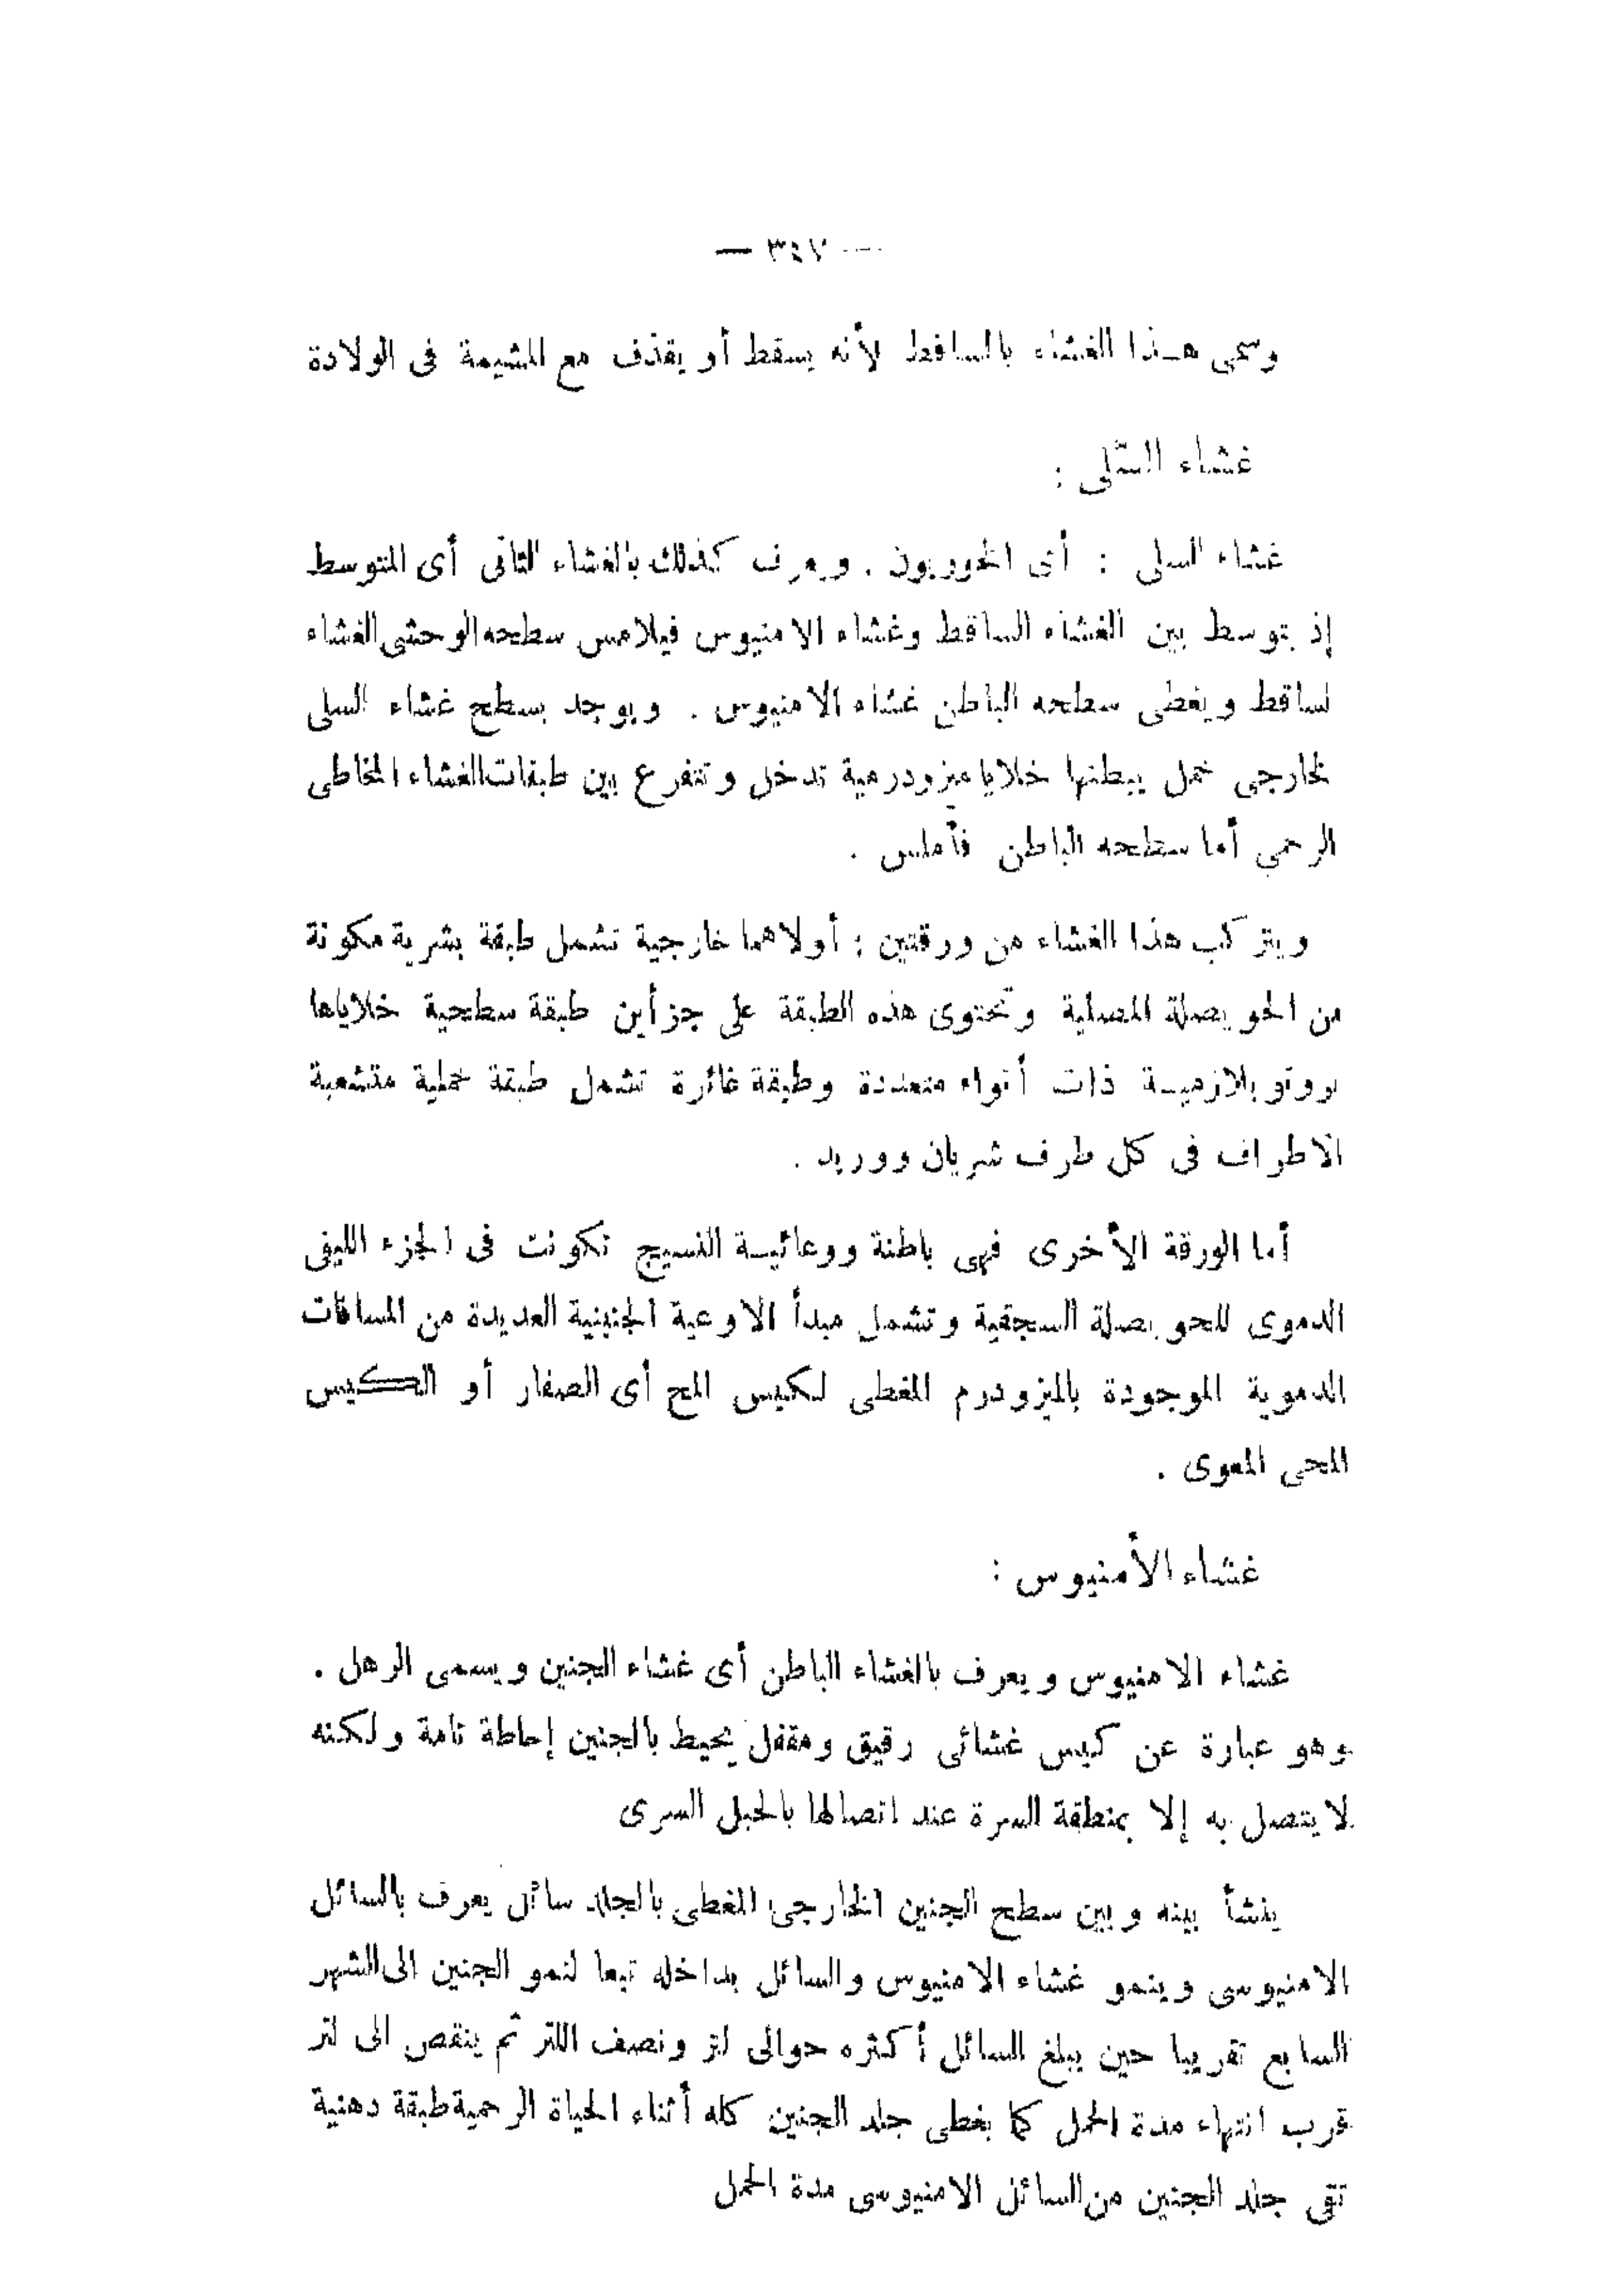 — ٣٤٧ —
وسمى هـذا الغشاء بالساقط لأنه يسقط أو يقذف مع المشيمة فى الولادة
غشاء السّلى :
غشاء السلى : أى الخوريون . ويعرف كذلك بالغشاء الثانى أى المتوسط
إذ يتوسط بين الغشاء الساقط وغشاء الامنيوس فيلامس سطحه الوحشى الغشاء
لساقط ويغطى سطحه الباطن غشاء الامنيوس . ويوجد بسطح غشاء السلى
لخارجى خمل يبطنها خلايا ميزودرمية تدخل وتتفرع بين طبقات الغشاء المخاطى
الرحمى أما سطحه الباطن فأملس .
ويتركب هذا الغشاء من ورقتين : أولاهما خارجية تشمل طبقة بشرية مكونة
من الحويصلة المصلية وتحتوى هذه الطبقة على جزأين طبقة سطحية خلاياها
بروتوبلازميـة ذات أنواء متعددة وطبقة غائرة تشمل طبقة خملية متشعبة
الاطراف فى كل طرف شريان ووريد .
أما الورقة الأخرى فهى باطنة ووعائيـة النسيج تكونت فى الجزء الليفى
الدموى للحويصلة السجقية وتشمل مبدأ الاوعية الجنينية العديدة من المسافات
الدموية الموجودة بالميزودرم المغطى لكيس المح أى الصفار أو الكيس
المحى المعوى .
غشاء الأمنيوس :
غشاء الامنيوس ويعرف بالغشاء الباطن أى غشاء الجنين ويسمى الرهل .
وهو عبارة عن كيس غشائى رقيق ومقفل يحيط بالجنين إحاطة تامة ولكنه
لا يتصل به إلا بمنطقة السرة عند اتصالها بالحبل السرى
ينشأ بينه وبين سطح الجنين الخارجى المغطى بالجلد سائل يعرف بالسائل
الامنيوسى وينمو غشاء الامنيوس والسائل بداخله تبعا لنمو الجنين الى الشهر
السابع تقريبا حين يبلغ السائل أكثره حوالى لتر ونصف اللتر ثم ينقص الى لتر
قرب انتهاء مدة الحمل كما يغطى جلد الجنين كله أثناء الحياة الرحمية طبقة دهنية
تقى جلد الجنين من السائل الامنيوسى مدة الحمل